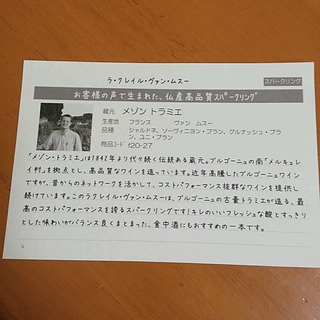 ラ・クレイル・ヴァン・ムスー
スパークリング
お客様の声で生まれた、仏産高品質スパークリング
蔵元 メゾン トラミエ
生産地 フランス ヴァン ムスー
品種 シャルドネ、ソーヴィニヨン・ブラン、グルナッシュ・ブラ
ン、ユニ・ブラン
商品コード f20-27
「メゾン・トラミエ」は1842年より代々続く伝統ある蔵元。ブルゴーニュの南「メルキュレ
イ村」を拠点とし、高品質なワインを造っています。近年高騰したブルゴーニュワイン
ですが、昔からのネットワークを活かして、コストパフォーマンス抜群なワインを提供し
続けています。このラ・クレイル・ヴァン・ムスーは、ブルゴーニュの古豪トラミエが造る、最
高のコストパフォーマンスを誇るスパークリングです！キレのいいフレッシュな酸とすっきり
とした味わいがバランス良くまとまった、食中酒にもおすすめの一本です。